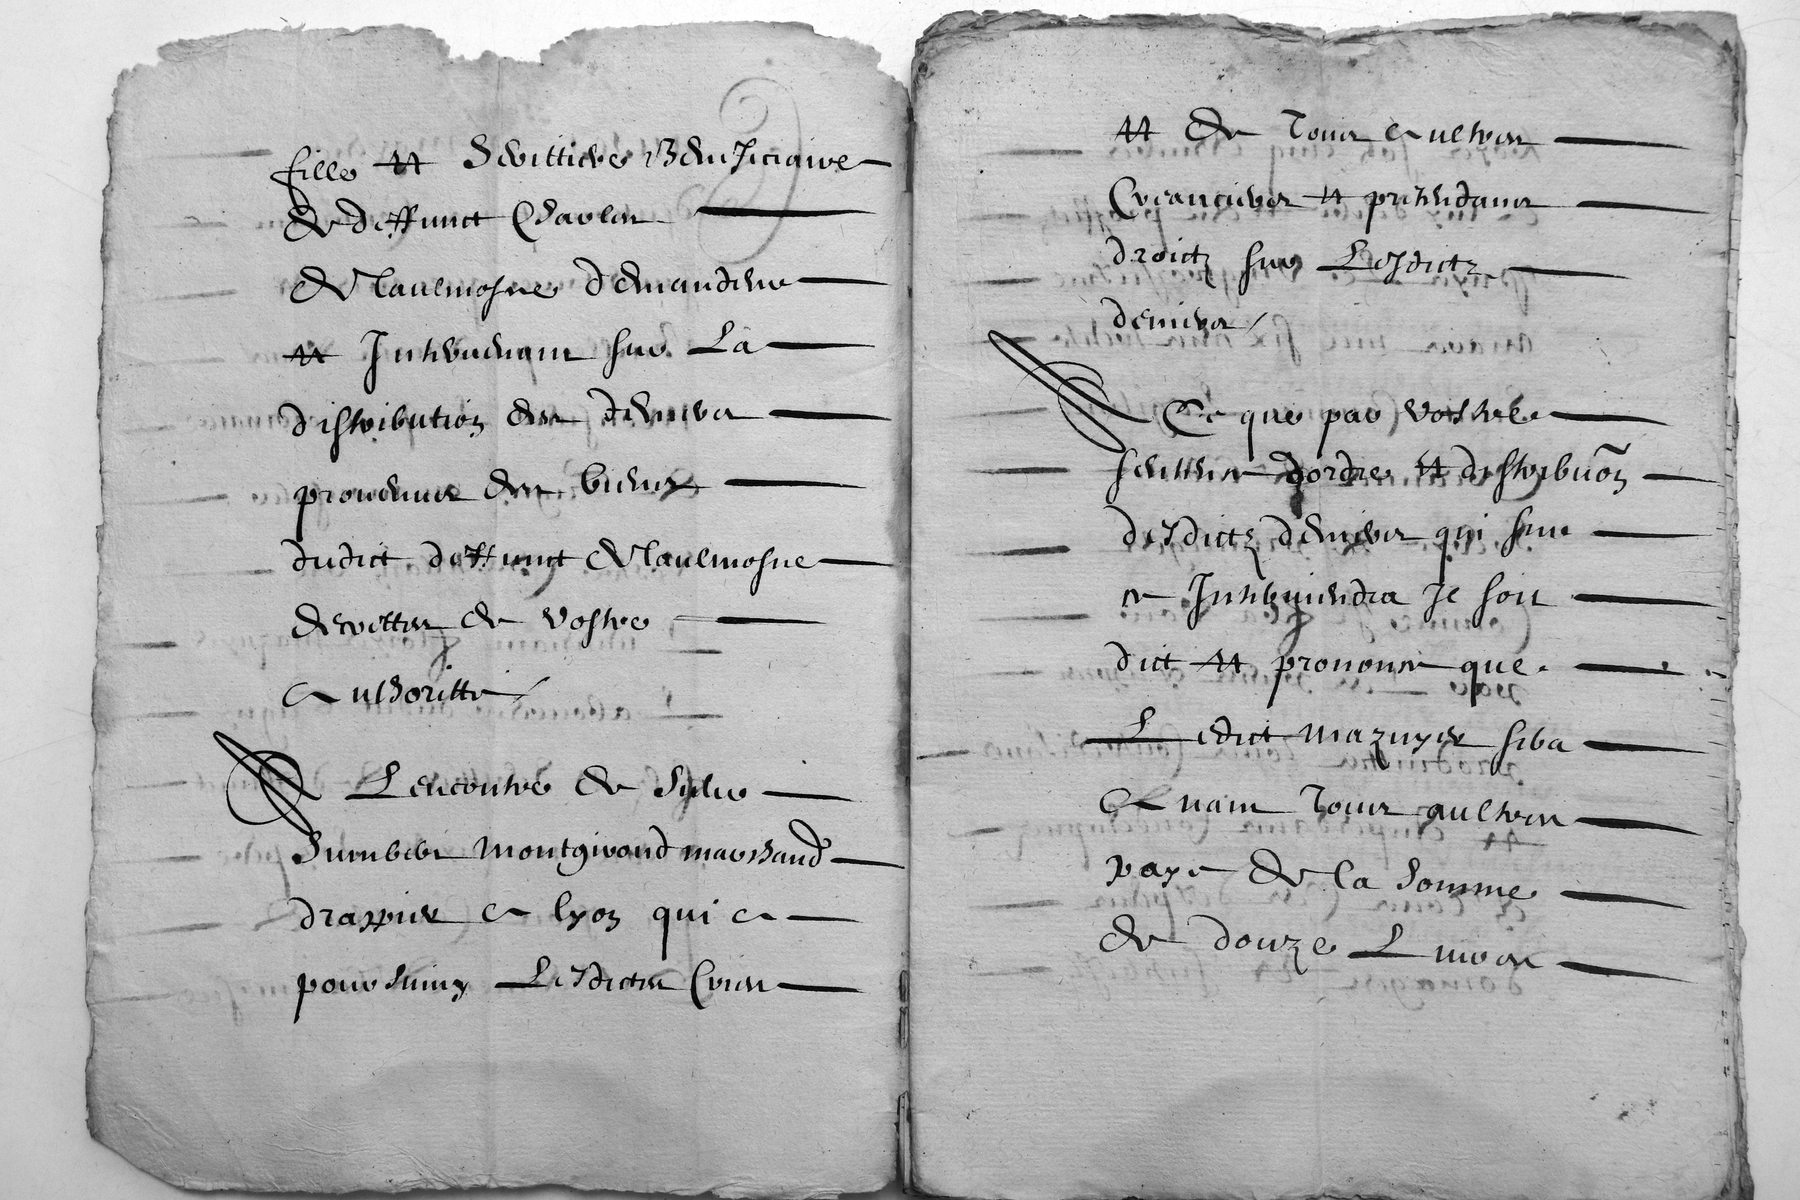 fille et heritiere Beneficiaire
de deffunct Charles
de laulmosne demanderesse
et Intervenant sur La
distribution des deniers
provenus des biens
dudict deffunct de laulmosne
decrettes de vostre
authoritte /
A Lencontre de
montgirond marchand
drappier a lyon qui a
poursuivy Lesdictes Criees
et de tous aultres
Creanciers et pretendans
droictz sur Lesdictz
deniers /
A Ce que par vostre
sentence dordre et distribuon
desdictz deniers qui sur
ce Interviendra Je soit
dict et prononce que
Ledict mazuyer sera
avant tous aultres
paye de la somme
de douze Livres